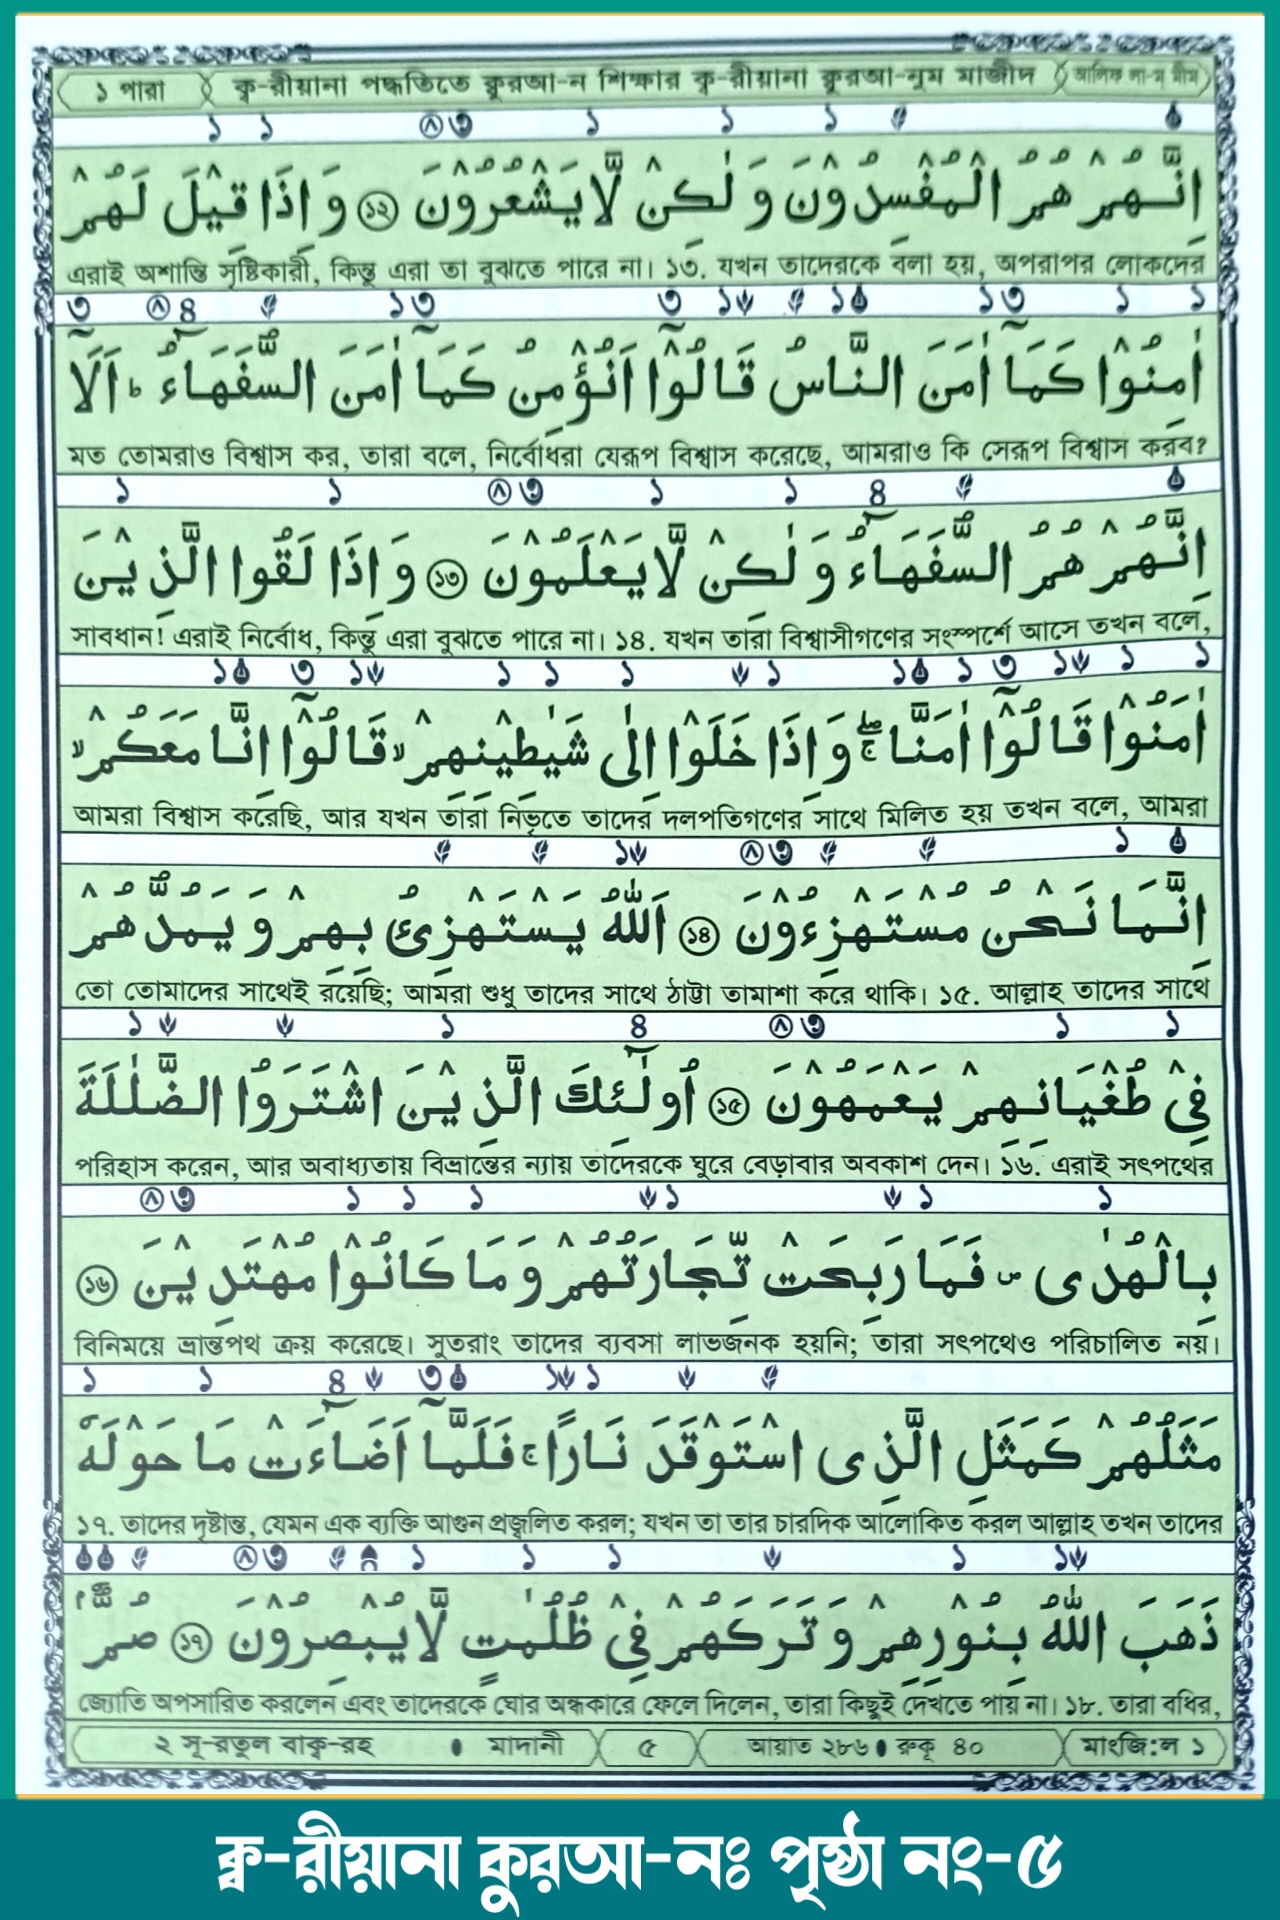 ১ পারা ক্ব-রীয়ানা পদ্ধতিতে ক্বুরআ-ন শিক্ষার ক্ব-রীয়ানা ক্বুরআ-নুম মাজীদ আলিফ লা-ম মীম
اِنَّهُمْ هُمُ الْمُفْسِدُوْنَ وَ لٰكِنْ لَّا يَشْعُرُوْنَ ⑫ وَ اِذَا قِيْلَ لَهُمْ
এরাই অশান্তি সৃষ্টিকারী, কিন্তু এরা তা বুঝতে পারে না। ১৩. যখন তাদেরকে বলা হয়, অপরাপর লোকদের
اٰمِنُوْا كَمَاۤ اٰمَنَ النَّاسُ قَالُوْۤا اَنُؤْمِنُ كَمَاۤ اٰمَنَ السُّفَهَآءُ ؕ اَلَاۤ
মত তোমরাও বিশ্বাস কর, তারা বলে, নির্বোধরা যেরূপ বিশ্বাস করেছে, আমরাও কি সেরূপ বিশ্বাস করব?
اِنَّهُمْ هُمُ السُّفَهَآءُ وَ لٰكِنْ لَّا يَعْلَمُوْنَ ⑬ وَ اِذَا لَقُوا الَّذِيْنَ
সাবধান! এরাই নির্বোধ, কিন্তু এরা বুঝতে পারে না। ১৪. যখন তারা বিশ্বাসীগণের সংস্পর্শে আসে তখন বলে,
اٰمَنُوْا قَالُوْۤا اٰمَنَّا ۖۚ وَ اِذَا خَلَوْا اِلٰى شَيٰطِيْنِهِمْ ۙ قَالُوْۤا اِنَّا مَعَكُمْ ۙ
আমরা বিশ্বাস করেছি, আর যখন তারা নিভৃতে তাদের দলপতিগণের সাথে মিলিত হয় তখন বলে, আমরা
اِنَّمَا نَحْنُ مُسْتَهْزِءُوْنَ ⑭ اَللّٰهُ يَسْتَهْزِئُ بِهِمْ وَ يَمُدُّهُمْ
তো তোমাদের সাথেই রয়েছি; আমরা শুধু তাদের সাথে ঠাট্টা তামাশা করে থাকি। ১৫. আল্লাহ তাদের সাথে
فِيْ طُغْيَانِهِمْ يَعْمَهُوْنَ ⑮ اُولٰٓئِكَ الَّذِيْنَ اشْتَرَوُا الضَّلٰلَةَ
পরিহাস করেন, আর অবাধ্যতায় বিভ্রান্তের ন্যায় তাদেরকে ঘুরে বেড়াবার অবকাশ দেন। ১৬. এরাই সৎপথের
بِالْهُدٰى ۪ فَمَا رَبِحَتْ تِّجَارَتُهُمْ وَ مَا كَانُوْا مُهْتَدِيْنَ ⑯
বিনিময়ে ভ্রান্তপথ ক্রয় করেছে। সুতরাং তাদের ব্যবসা লাভজনক হয়নি; তারা সৎপথেও পরিচালিত নয়।
مَثَلُهُمْ كَمَثَلِ الَّذِى اسْتَوْقَدَ نَارًا ۚ فَلَمَّاۤ اَضَآءَتْ مَا حَوْلَهٗ
১৭. তাদের দৃষ্টান্ত, যেমন এক ব্যক্তি আগুন প্রজ্বলিত করল; যখন তা তার চারদিক আলোকিত করল আল্লাহ তখন তাদের
ذَهَبَ اللّٰهُ بِنُوْرِهِمْ وَ تَرَكَهُمْ فِيْ ظُلُمٰتٍ لَّا يُبْصِرُوْنَ ⑰ صُمٌّۢ
জ্যোতি অপসারিত করলেন এবং তাদেরকে ঘোর অন্ধকারে ফেলে দিলেন, তারা কিছুই দেখতে পায় না। ১৮. তারা বধির,
২ সূ-রতুল বাক্ব-রহ • মাদানী ৫ আয়াত ২৮৬ • রুকূ ৪০ মাংজি:ল ১
ক্ব-রীয়ানা কুরআ-নঃ পৃষ্ঠা নং-৫